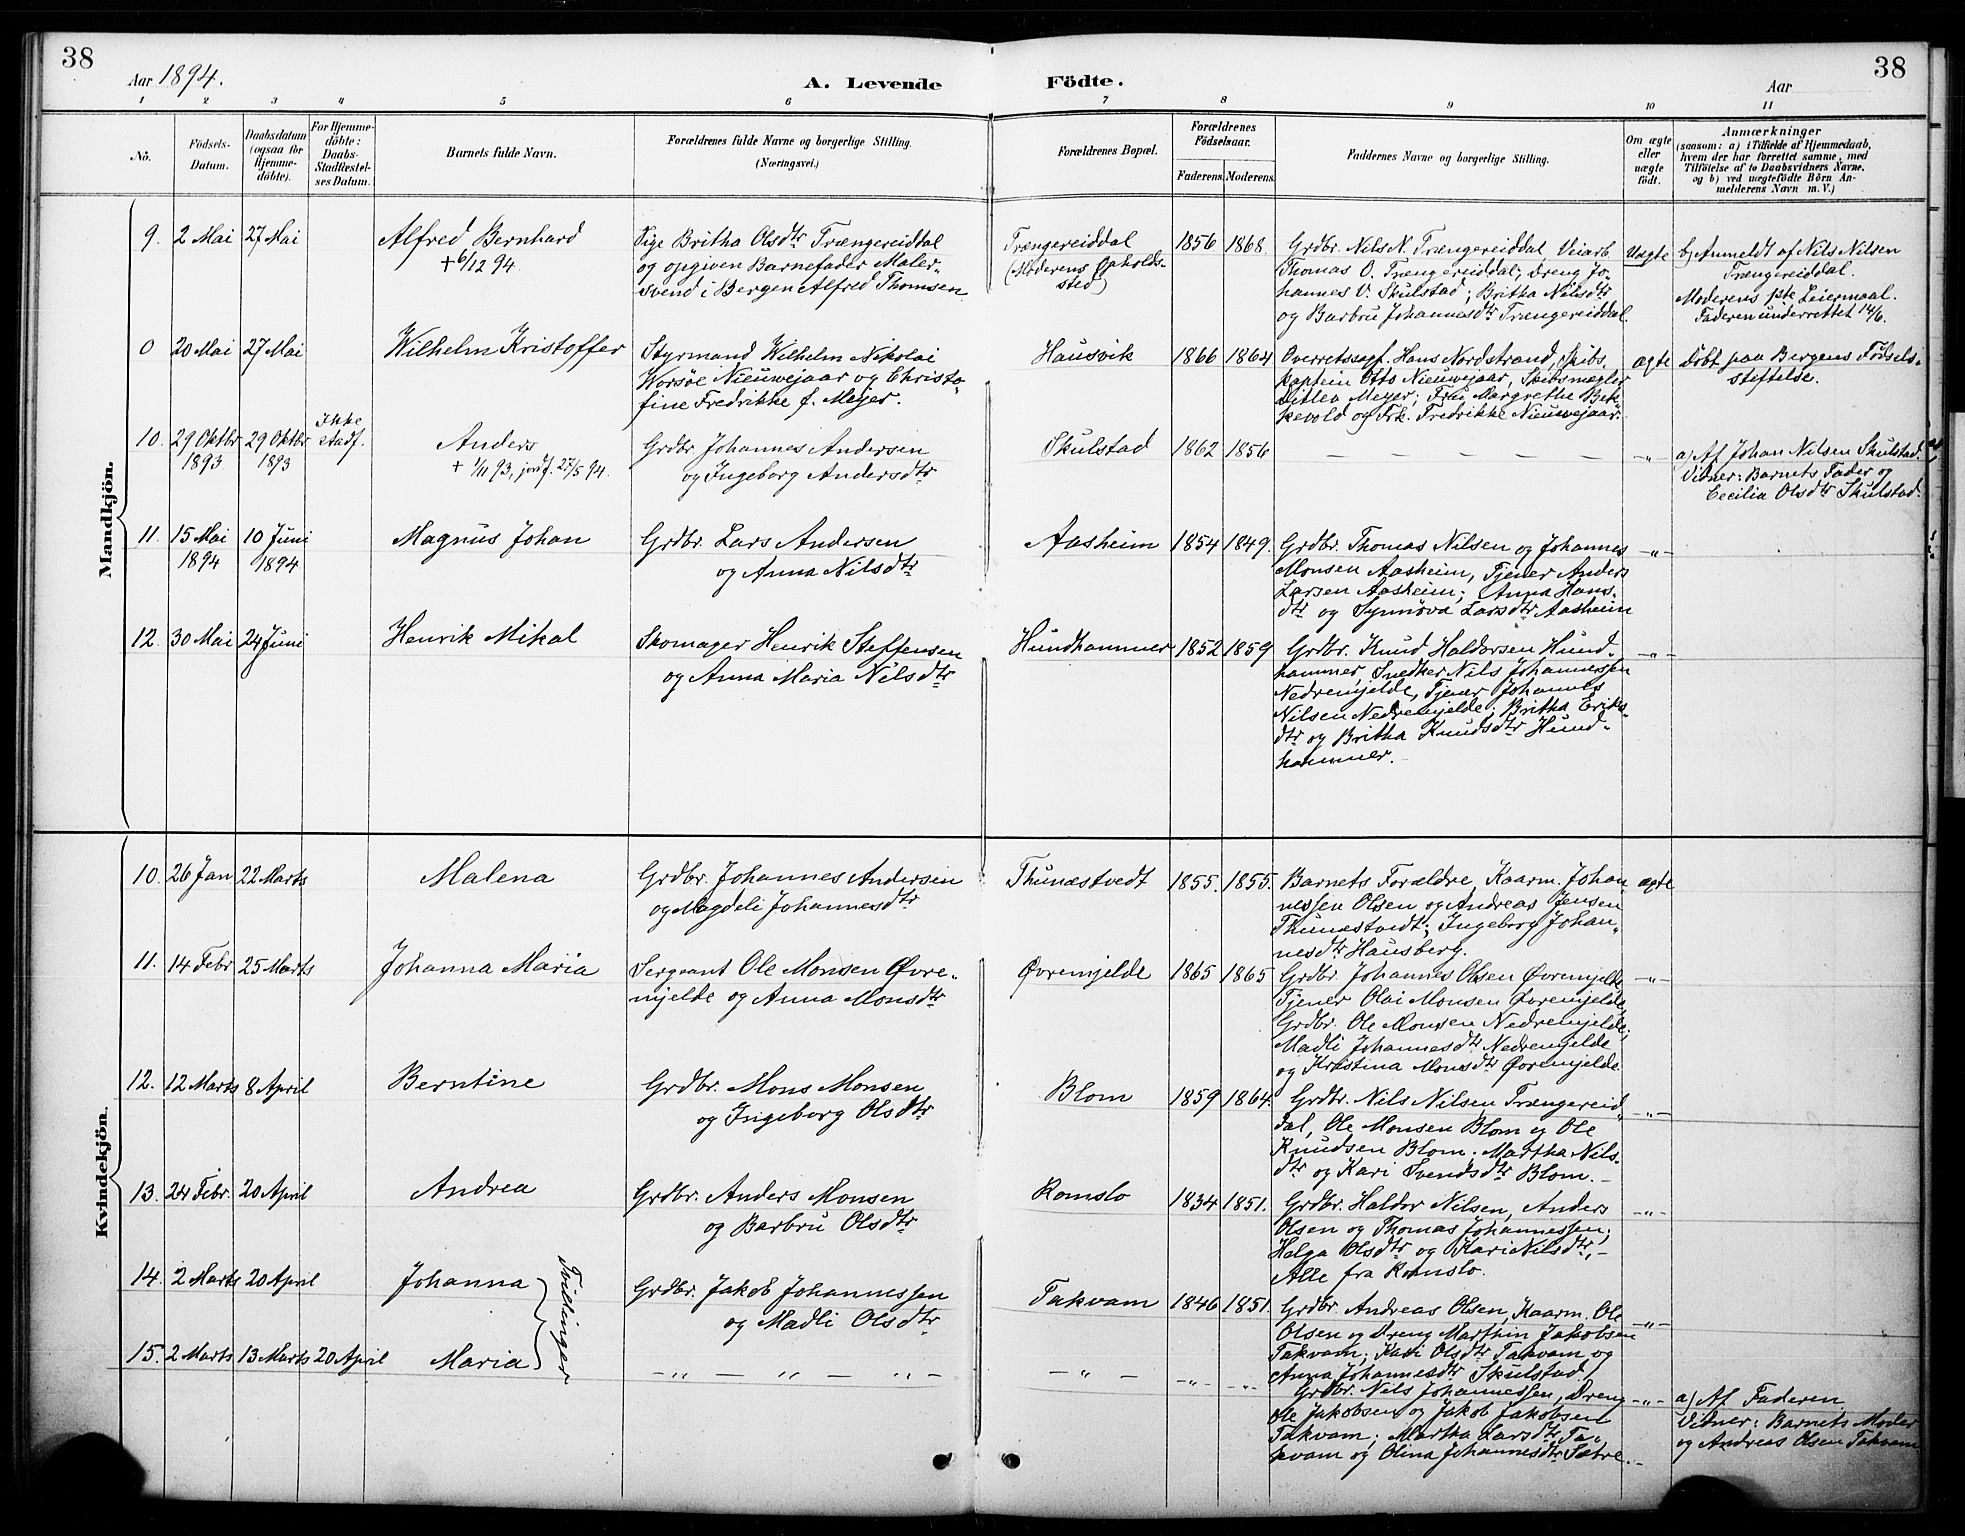 38
Aar 1894.
A. Levende Födte.
Aar
38
1 2 3 4 5 6 7 8 9 10 11
No.
Födsels-Datum.
Daabsdatum (ogsaa for Hjemme-döbte).
For Hjemme-döbte: Daabs-Stadfæstel-ses Datum.
Barnets fulde Navn.
Forældrenes fulde Navne og borgerlige Stilling. (Næringsvei.)
Forældrenes Bopæl.
Forældrenes Födselsaar.
Faderens. Moderens.
Faddernes Navne og borgerlige Stilling.
Om ægte eller uægte födt.
Anmærkninger
(saasom: a) i Tilfælde af Hjemmedaab,
hvem der har forrettet samme, med
Tilföielse af to Daabsvidners Navne,
og b) ved uægtefödte Börn An-
melderens Navn m. V.)
Mandkjön.
9. 2 Mai 27 Mai
Alfred Bernhard
+ 6/12 94.
Pige Britha Olsdtr Trængereiddal
og opgiven Barnefader Maler-
svend i Bergen Alfred Thomsen
Trængereiddal
(Moderens Opholds-
sted)
1856 1868.
Grdbr. Nils N. Trængereiddal, Veiarb.
Thomas O. Trængereiddal; Dreng Jo-
hannes O. Skulstad; Britha Nilsdtr
og Barbru Johannesdtr Trængereiddal.
Uægte
b) Anmeldt af Nils Nilsen
Trængereiddal.
Moderens 1ste Leiermaal.
Faderen underrettet 14/6.
0 20 Mai 27 Mai
Wilhelm Kristoffer
Styrmand Wilhelm Nikolai
Worsöe Nieuwejaar og Christo-
fine Fredrikke f. Meyer.
Hausvik
1866 1864
Overretssagf. Hans Nordstrand, Skibs-
kaptein Otto Nieuwejaar, Skibsmægler
Ditlev Meyer; Frue Margrethe Bek-
kevold og Frk. Fredrikke Nieuwejaar.
ægte
Döbt paa Bergens Födsels-
stiftelse.
10. 29 Oktbr 1893. 29 Oktbr 1893 Ikke stadf.
Anders
+ 1/11 93, jordf. 27/5 94.
Grdbr. Johannes Andersen
og Ingeborg Andersdtr
Skulstad
1862 1856
— — — — — —
-"-
a) Af Johan Nilsen Skulstad.
Vidner: Barnets Fader og
Cecilia Olsdtr Skulstad.
11. 15 Mai 1894 10 Juni 1894
Magnus Johan
Grdbr. Lars Andersen
og Anna Nilsdtr
Aasheim
1854 1849.
Grdbr. Thomas Nilsen og Johannes
Monsen Aasheim, Tjener Anders
Larsen Aasheim; Anna Hans-
dtr og Synnöva Larsdtr Aasheim
-"-
12. 30 Mai 24 Juni
Henrik Mikal
Skomager Henrik Steffensen
og Anna Maria Nilsdtr
Hundhammer
1852 1859
Grdbr. Knud Haldorsen Hund-
hammer, Snedker Nils Johannessen
Nedremjelde, Tjener Johannes
Nilsen Nedremjelde; Britha Eriks-
dtr og Britha Knudsdtr Hund-
hammer.
-"-
Kvindekjön.
10. 26 Jan 22 Marts
Malena
Grdbr. Johannes Andersen
og Magdeli Johannesdtr
Thunæstvedt
1855. 1855.
Barnets Forældre, Kaarm. Johan-
nessen Olsen og Andreas Jensen
Thunæstvedt; Ingeborg Johan-
nesdtr Hausberg.
ægte
11. 14 Febr 25 Marts
Johanna Maria
Sergeant Ole Monsen Øvre-
mjelde og Anna Monsdtr
Øvremjelde
1865 1865
Grdbr. Johannes Olsen Øvremjelde,
Tjener Olai Monsen Øvremjelde,
Grdbr. Ole Monsen Nedremjelde;
Madli Johannesdtr Nedremjelde
og Kristina Monsdtr Øvremjelde.
-"-
12. 12 Marts 8 April
Berntine
Grdbr. Mons Monsen
og Ingeborg Olsdtr
Blom
1859 1864.
Grdbr. Nils Nilsen Trængereid-
dal, Ole Monsen Blom og Ole
Knudsen Blom; Martha Nils-
dtr og Kari Svendsdtr Blom.
-"-
13. 24 Febr. 20 April
Andrea
Grdbr. Anders Monsen
og Barbru Olsdtr
Romslo
1834 1851.
Grdbr. Haldor Nilsen, Anders
Olsen og Thomas Johannessen;
Helga Olsdtr og Kari Nilsdtr,
Alle fra Romslo.
-"-
14. 2 Marts 20 April
Johanna
Tvillinger
Grdbr. Jakob Johannessen
og Madli Olsdtr
Takvam
1846 1851.
Grdbr. Andreas Olsen, Kaarm. Ole
Olsen og Dreng Marthin Jakobsen
Takvam; Kari Olsdtr Takvam og
Anna Johannesdtr Skulstad.
-"-
15. 2 Marts 13 Marts 20 April
Maria
— " — " — " —
— " —
-"- -"-
Grdbr. Nils Johannessen, Dreng
Ole Jakobsen og Jakob Jakobsen
Takvam; Martha Larsdtr Ta-
kvam og Olina Johannesdtr Sætre.
-"-
a) Af Faderen
Vidner: Barnets Moder
og Andreas Olsen Takvam